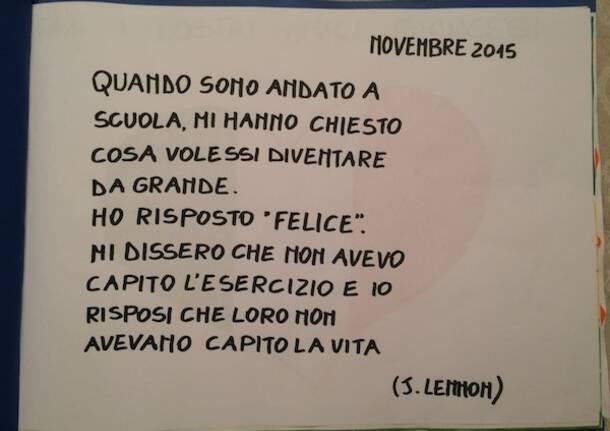 NOVEMBRE 2015
QUANDO SONO ANDATO A
SCUOLA, MI HANNO CHIESTO
COSA VOLESSI DIVENTARE
DA GRANDE.
HO RISPOSTO "FELICE".
MI DISSERO CHE NON AVEVO
CAPITO L'ESERCIZIO E IO
RISPOSI CHE LORO NON
AVEVANO CAPITO LA VITA
(J. LENNON)